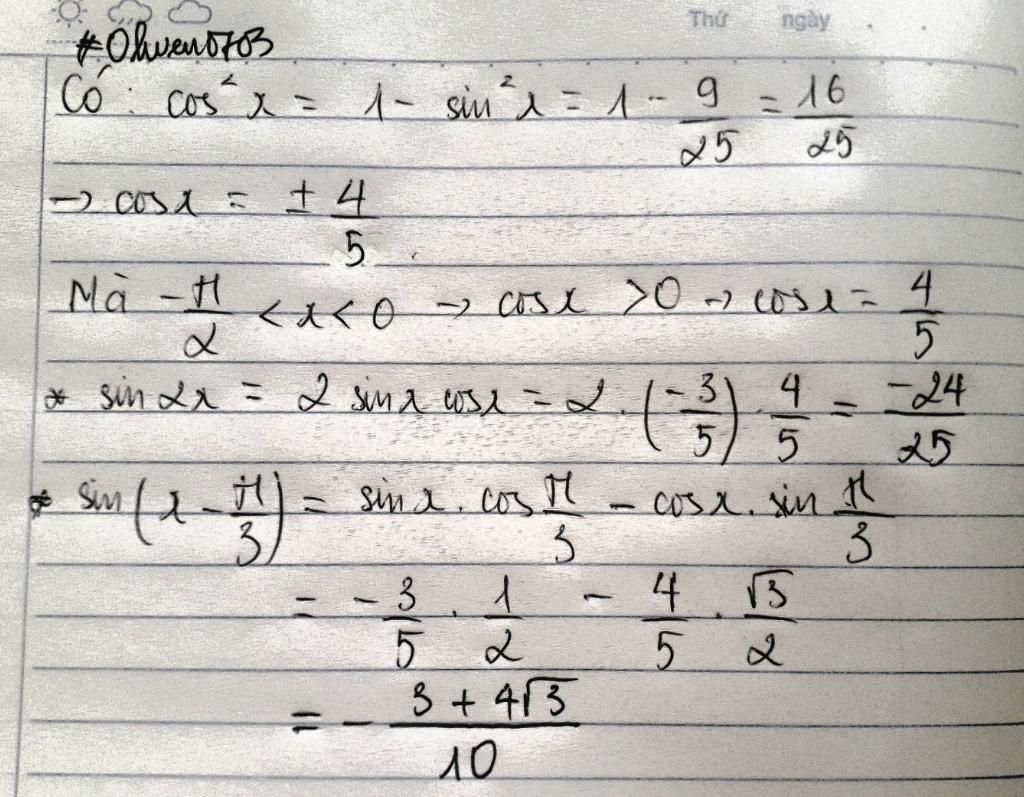 Thứ ngày . .
Có: cos²x = 1 - sin²x = 1 - 9/25 = 16/25
→ cosx = ± 4/5
Mà -π/2 < x < 0 → cosx > 0 → cosx = 4/5
* sin2x = 2 sinx cosx = 2 . (-3/5) . 4/5 = -24/25
* sin(x - π/3) = sinx . cos π/3 - cosx . sin π/3
= - 3/5 . 1/2 - 4/5 . √3/2
= - (3 + 4√3)/10